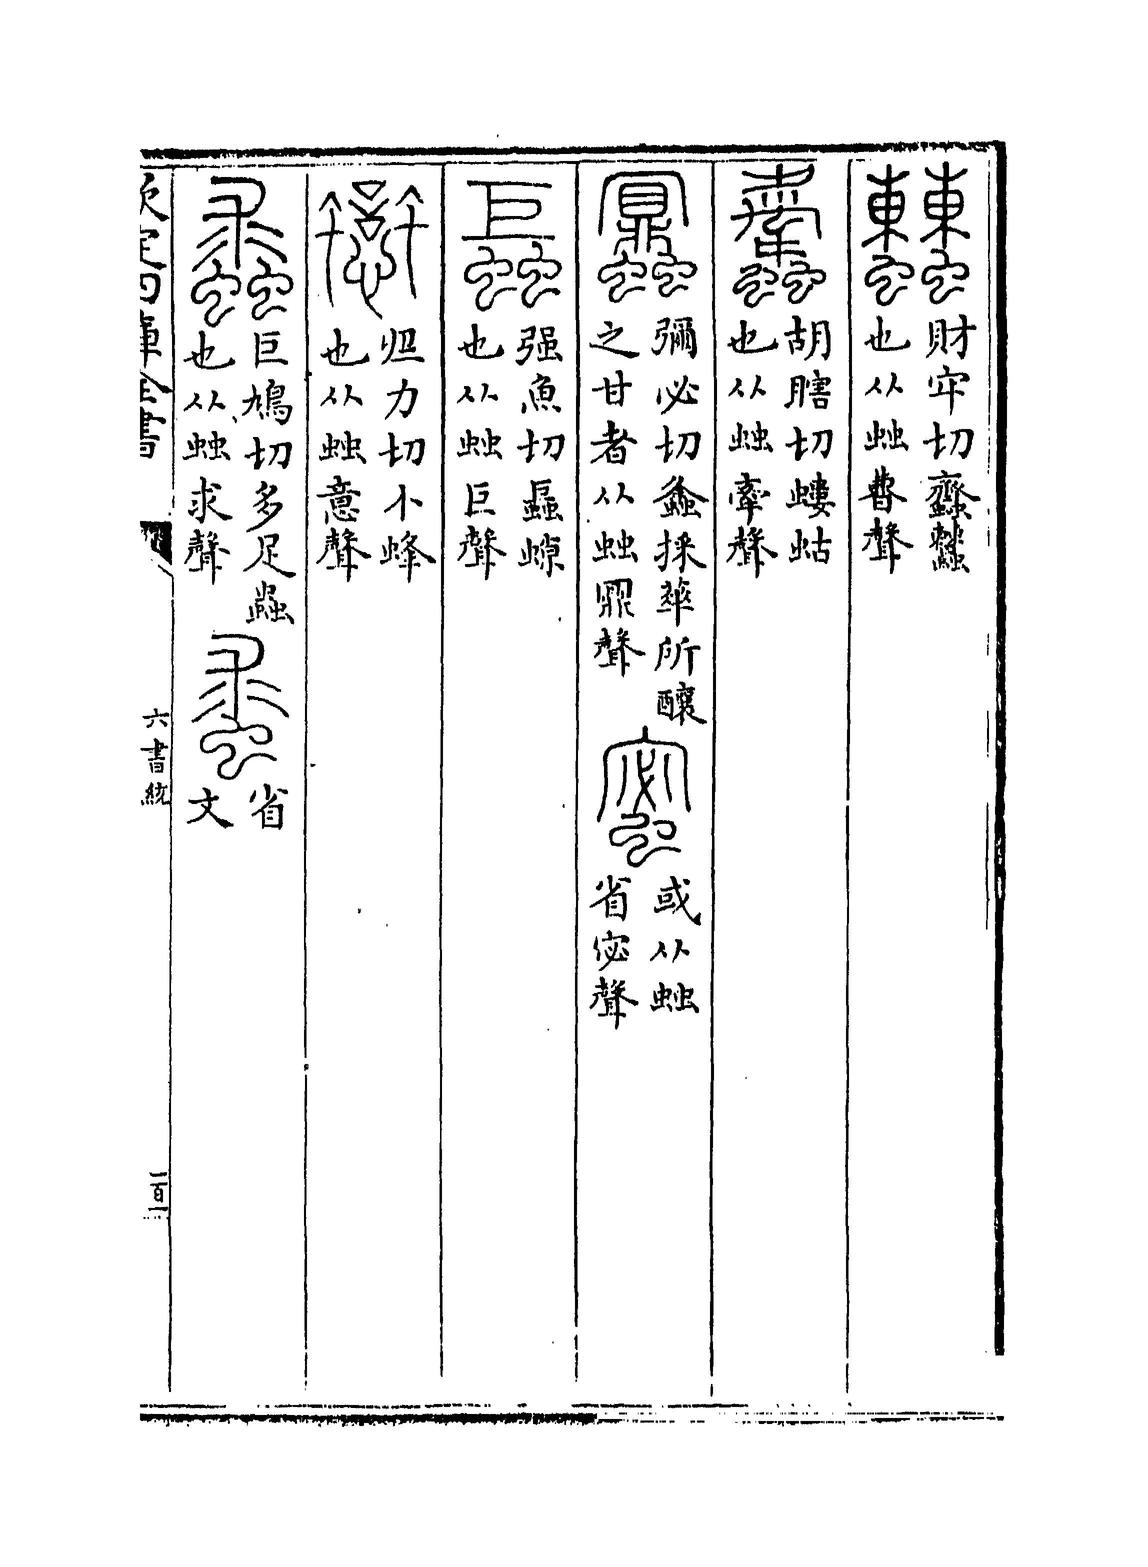 財牢切蠶𧕴
也从䖵曹聲
胡瞎切螻蛄
也从䖵牽聲
彌必切䖵採華所釀
之甘者从䖵鼏聲
或从䖵
省宓聲
强魚切蟁蟟
也从䖵巨聲
忌力切小蜂
也从䖵意聲
巨鳩切多足蟲
也从䖵求聲
省
文
欽定四庫全書
六書統
一百一